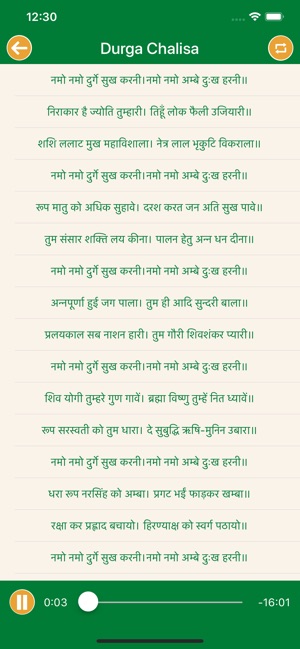 12:30
Durga Chalisa
नमो नमो दुर्गे सुख करनी।नमो नमो अम्बे दुःख हरनी॥
निराकार है ज्योति तुम्हारी। तिहूँ लोक फैली उजियारी॥
शशि ललाट मुख महाविशाला। नेत्र लाल भृकुटि विकराला॥
नमो नमो दुर्गे सुख करनी।नमो नमो अम्बे दुःख हरनी॥
रूप मातु को अधिक सुहावे। दरश करत जन अति सुख पावे॥
तुम संसार शक्ति लय कीना। पालन हेतु अन्न धन दीना॥
नमो नमो दुर्गे सुख करनी।नमो नमो अम्बे दुःख हरनी॥
अन्नपूर्णा हुई जग पाला। तुम ही आदि सुन्दरी बाला॥
प्रलयकाल सब नाशन हारी। तुम गौरी शिवशंकर प्यारी॥
नमो नमो दुर्गे सुख करनी।नमो नमो अम्बे दुःख हरनी॥
शिव योगी तुम्हरे गुण गावें। ब्रह्मा विष्णु तुम्हें नित ध्यावें॥
रूप सरस्वती को तुम धारा। दे सुबुद्धि ऋषि-मुनिन उबारा॥
नमो नमो दुर्गे सुख करनी।नमो नमो अम्बे दुःख हरनी॥
धरा रूप नरसिंह को अम्बा। प्रगट भईं फाड़कर खम्बा॥
रक्षा कर प्रह्लाद बचायो। हिरण्याक्ष को स्वर्ग पठायो॥
नमो नमो दुर्गे सुख करनी।नमो नमो अम्बे दुःख हरनी॥
0:03 -16:01